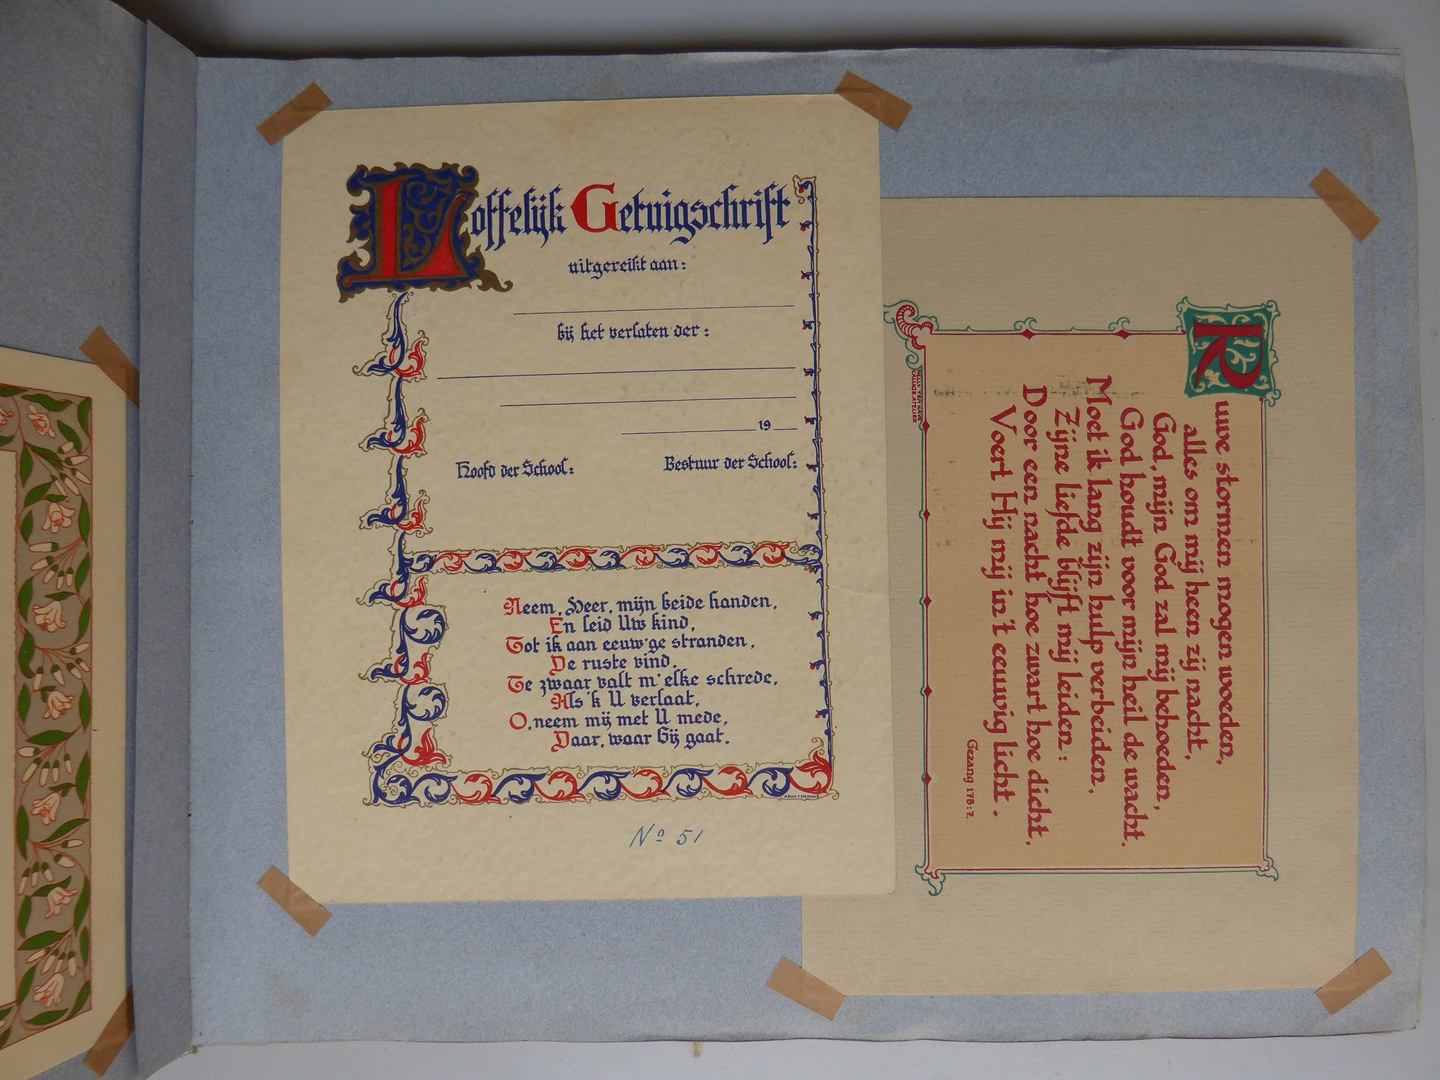 Loffelijk Getuigschrift
uitgereikt aan:
bij het verlaten der:
19
Hoofd der School:
Bestuur der School:
Neem, Heer, mijn beide handen,
En leid Uw kind,
Tot ik aan eeuw'ge stranden,
De ruste vind.
Te zwaar valt m' elke schrede,
Als 'k U verlaat,
O, neem mij met U mede,
Daar, waar Gij gaat.
No 51
Ruwe stormen mogen woeden,
alles om mij heen zij nacht,
God, mijn God zal mij behoeden,
God houdt voor mijn heil de wacht.
Moet ik lang zijn hulp verbeiden,
Zijne liefde blijft mij leiden:
Door een nacht hoe zwart hoe dicht,
Voert Hij mij in 't eeuwig licht.
Gezang 178:7.